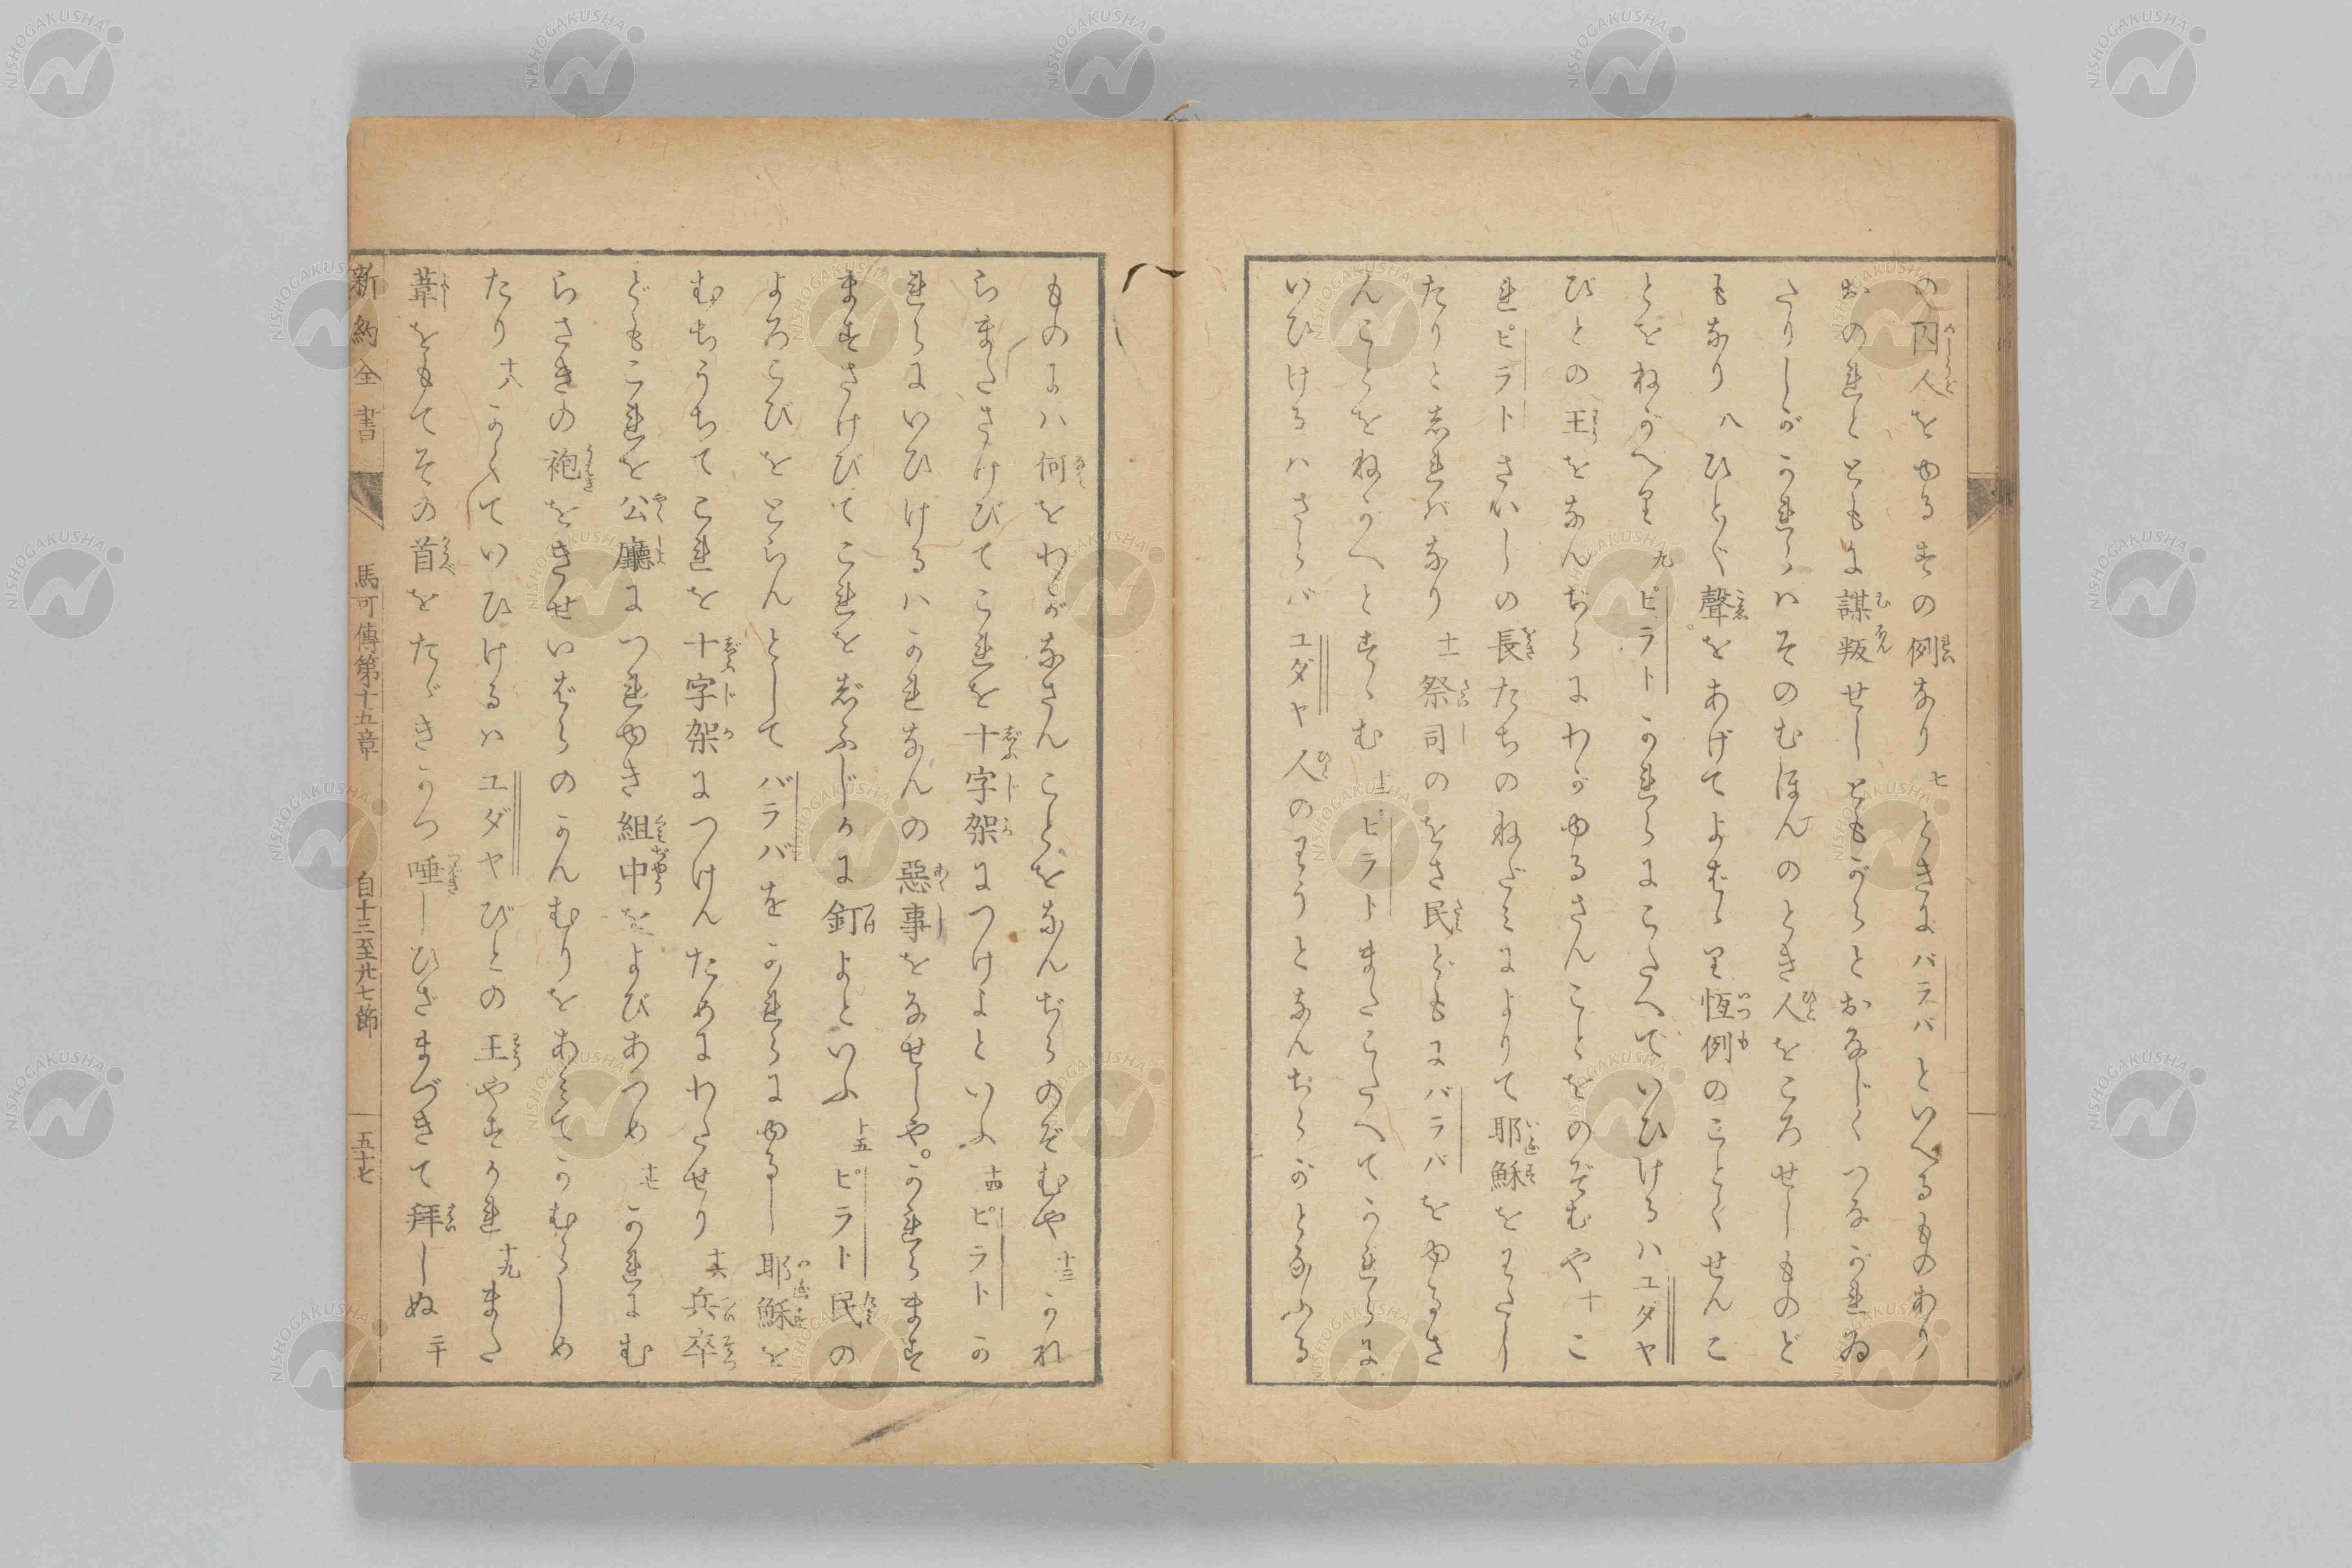 の囚人をゆるすの例なり 七 ときにバラバといへるものあり
おのれとともに謀叛せしともがらとおなじくつながれゐ
たりしがかれらハそのむほんのとき人をころせしものど
もなり 八 ひとびと聲をあげてよばゝり恆例のごとくせんこ
とをねがへり 九 ピラトかれらにこたへていひけるハユダヤ
びとの王をなんぢらにわがゆるさんことをのぞむや 十 こ
れピラトさいしの長たちのねたミによりて耶穌をわたし
たりとしれバなり 十一 祭司のをさ民どもにバラバをゆるさ
んことをねがへとすゝむ 十二 ピラトまたこたへてかれらに
いひけるハさらバユダヤ人のわうとなんぢらがとなふる
ものにハ何をわがなさんことをなんぢらのぞむや 十三 かれ
らまたさけびてこれを十字架につけよといふ 十四 ピラトか
れらにいひけるハかれなんの惡事をなせしや。かれらます
ますさけびてこれをじふじかに釘よといふ 十五 ピラト民の
よろこびをとらんとしてバラバをかれらにゆるし耶穌を
むちうちてこれを十字架につけんためにわたせり 十六 兵卒
どもこれを公廳につれゆき組中をよびあつめ 十七 かれにむ
らさきの袍をきせいばらのかんむりをあミてかむらしめ
たり 十八 かくていひけるハユダヤびとの王やすかれ 十九 また
葦をもてその首をたゝきかつ唾しひざまづきて拜しぬ 二十
新約全書 馬可傳第十五章 自十三至廿七節 五十七